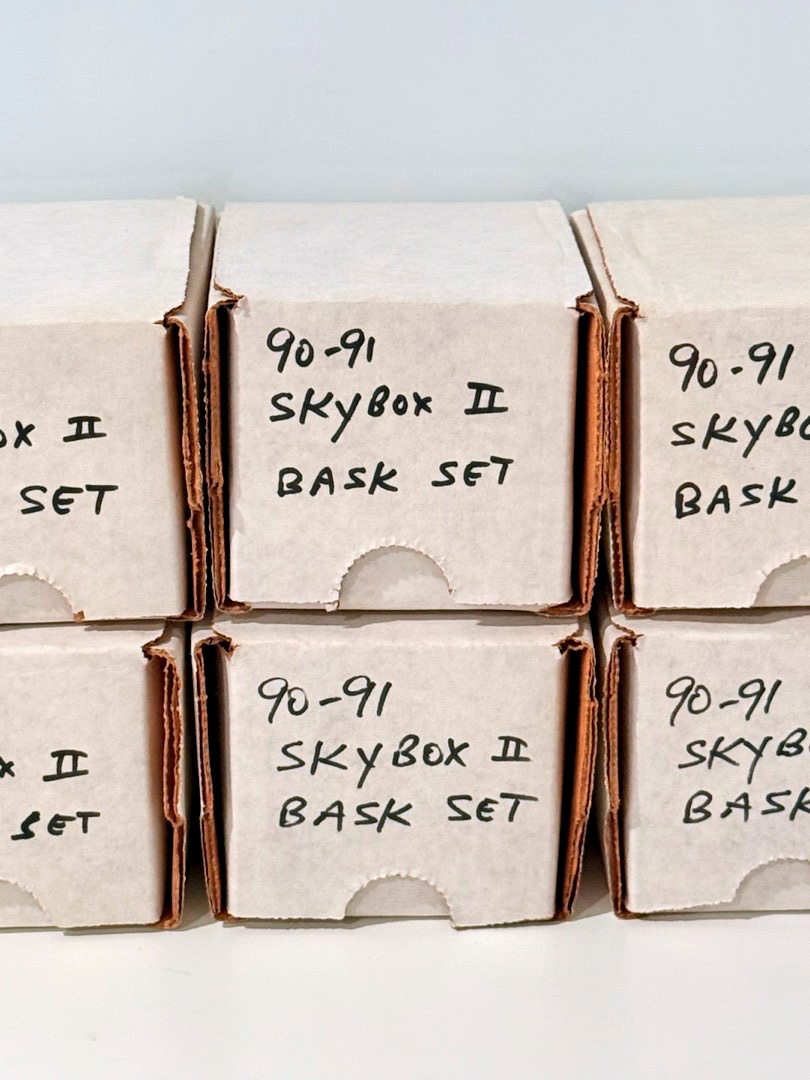 OX II
SET
90-91
SKYBOX II
BASK SET
90-91
SKYBO
BASK
X II
SET
90-91
SKYBOX II
BASK SET
90-91
SKYB
BASK